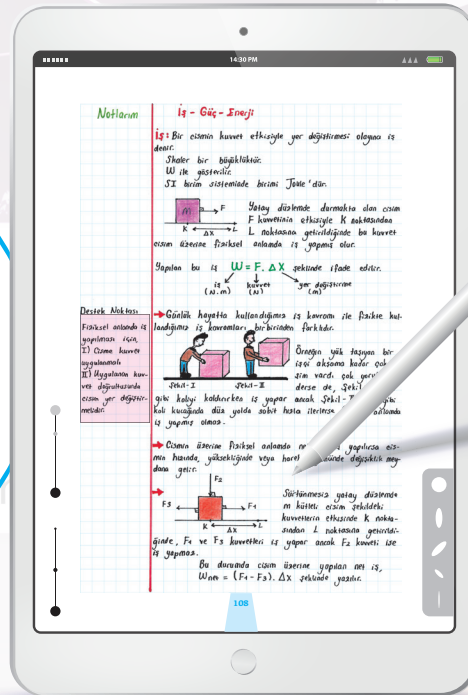 14:30 PM
Notlarım
İş - Güç - Enerji
İş: Bir cismin kuvvet etkisiyle yer değiştirmesi olayına iş
denir.
Skaler bir büyüklüktür.
W ile gösterilir.
SI birim sisteminde birimi Joule'dür.
m F
K ΔX L
Yatay düzlemde durmakta olan cisim
F kuvvetinin etkisiyle K noktasından
L noktasına getirildiğinde bu kuvvet
cisim üzerine fiziksel anlamda iş yapmış olur.
Yapılan bu iş W = F. ΔX şeklinde ifade edilir.
iş kuvvet yer değiştirme
(N.m) (N) (m)
Destek Noktası
Fiziksel anlamda iş
yapılması için,
I) Cisme kuvvet
uygulanmalı
II) Uygulanan kuv-
vet doğrultusunda
cisim yer değiştir-
melidir.
Günlük hayatta kullandığımız iş kavramı ile fizikte kul-
landığımız iş kavramları birbirinden farklıdır.
Şekil-I Şekil-II
Örneğin yük taşıyan bir
işçi akşama kadar
şim vardı çok
derse de, Şekil
gibi koliyi kaldırırken iş yapar ancak Şekil-II gibi
koli kucağında düz yolda sabit hızla ilerlerse
iş yapmış olmaz.
Cismin üzerine fiziksel anlamda net iş yapılırsa cis-
min hızında, yüksekliğinde veya değişiklik mey-
dana gelir.
F2
F3 F1
K ΔX L
Sürtünmesiz yatay düzlemde
m kütleli cisim şekildeki
kuvvetlerin etkisinde K nokta-
sından L noktasına getirildi-
ğinde, F1 ve F3 kuvvetleri iş yapar ancak F2 kuvveti ise
iş yapmaz.
Bu durumda cisim üzerine yapılan net iş,
Wnet = (F1 - F3). ΔX şeklinde yazılır.
108